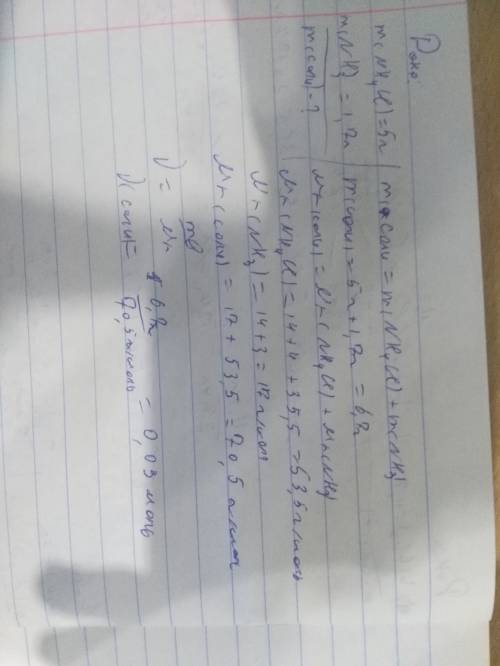 Дано:
m(NH4Cl)=5г | m(соли) = m(NH4Cl)+m(NH3)
m(NH3) = 1,7г | m(соли) = 5г+1,7г = 6,7г
m(соли)-? Mr(соли) = Mr(NH4Cl)+Mr(NH3)
Mr(NH4Cl) = 14+4+35,5=53,5г/моль
Mr(NH3) = 14+3=17г/моль
Mr(соли) = 17+53,5 = 70,5 г/моль
ν = m/Mr
ν(соли)= 6,7г/70,5г/моль = 0,03 моль